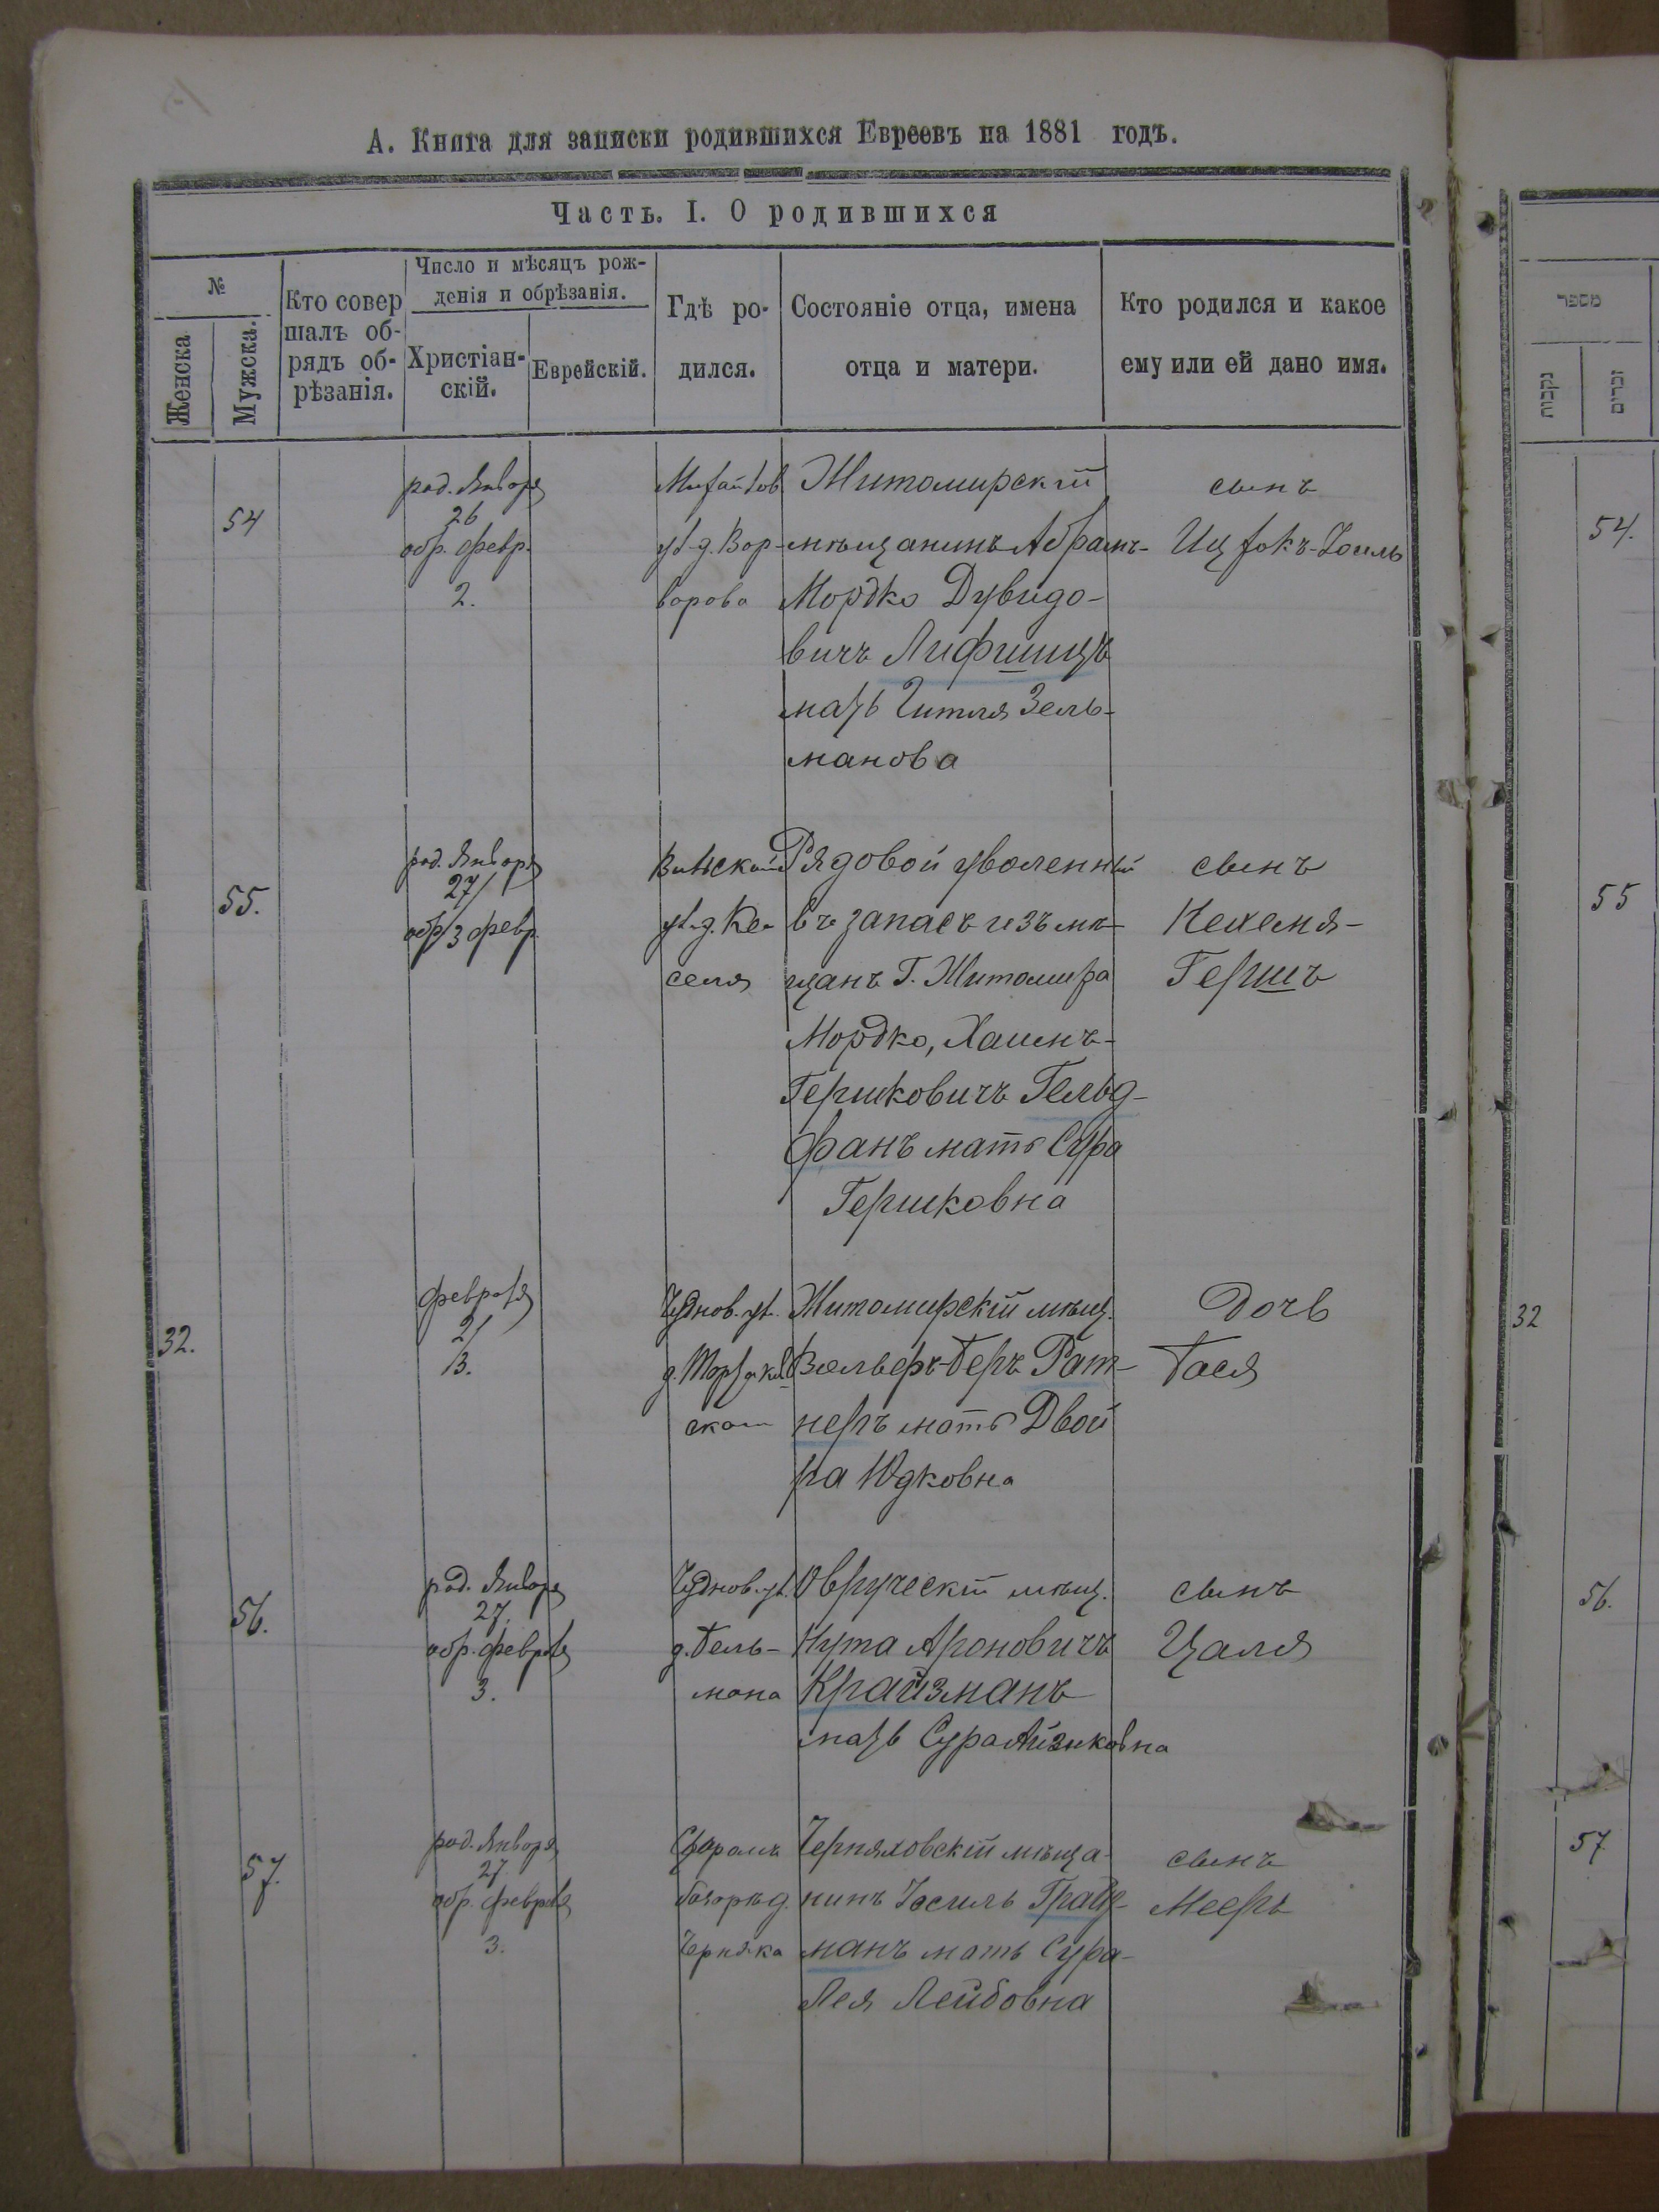 А. Книга для записки родившихся Евреевъ на 1881 годъ.
Часть. I. О родившихся
№
Женска
Мужска.
Кто совер
шалъ об-
рядъ об-
рѣзанія.
Число и мѣсяцъ рож-
денія и обрѣзанія.
Христіан-
скій.
Еврейскій.
Гдѣ ро-
дился.
Состояніе отца, имена
отца и матери.
Кто родился и какое
ему или ей дано имя.
54
род. Января
26
обр. февр.
2.
ул. д. Вор-
варова
Житомирскій
мѣщанинъ Абрамъ-
Мордко Дувидо-
вичъ Лифшицъ
мать Гитля Зель-
манова
сынъ
Ицхокъ-Іосиль
55.
род. Января
27
обр 3 февр.
Вильской
ул. д. Ке-
селя
Рядовой уволенный
въ запасъ изъ мѣ-
щанъ Г. Житомира
Мордко, Хаимъ-
Гершковичъ Гельд-
фанъ мать Сура
Гершковна
сынъ
Нехемя-
Гершъ
32.
февраля
2
13.
Чуднов. ул.
ском
Житомирскій мѣщ.
Вольверъ-Беръ Рат-
неръ мать Двой
ра Юдковна
Дочь
Бася
56.
род. Января
27.
обр. февраля
3.
Чуднов. ул.
д. Гель-
мана
Овручскій мѣщ.
Нута Ароновичъ
Крайзманъ
мать Сура Айзиковна
сынъ
Цаля
57.
род. Января
27
обр. февраля
3.
базаръ д.
Черняка
Черняховскій мѣща-
нинъ Іосиль Грац-
манъ мать Сура-
Лея Лейбовна
сынъ
Мееръ
מספר
נקבות
זכרים
54.
55
32
56.
57